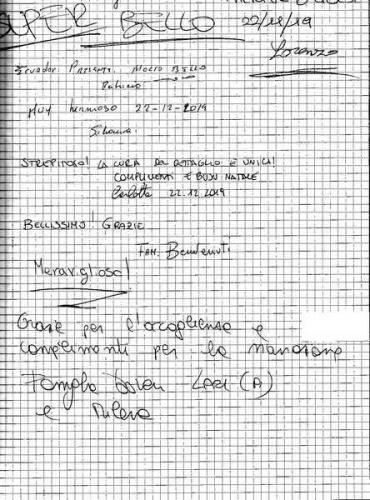 SUPER BELLO 22/12/19
Lorenzo
Ecuador PRESENTE. MOLTO BELLO
Patricio
MUY hermoso 22-12-2019
Silvana
STREPITOSO! LA CURA DEL DETTAGLIO È UNICA!
COMPLIMENTI E BUON NATALE
Carlotta 22.12.2019
BELLISSIMO! GRAZIE
FAM. Benvenuti
Meraviglioso!
Grazie per l'accoglienza e
complimenti per la
Famiglia Lecci (A)
e Milena